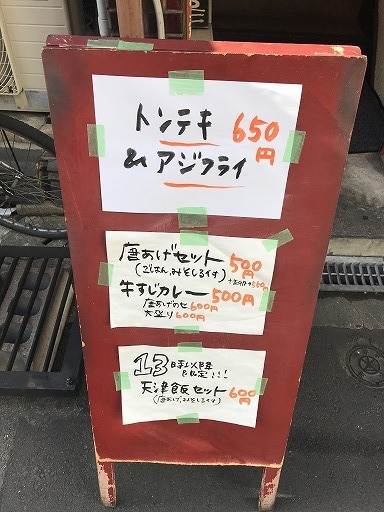 トンテキ 650円
& アジフライ
唐あげセット 500円
(ごはん,みそしるイオ)
牛すじカレー 500円
唐あげのせ 600円
大盛り 600円
13時以降
限定!!!
天津飯セット 600円
(唐あげ,みそしるイオ)